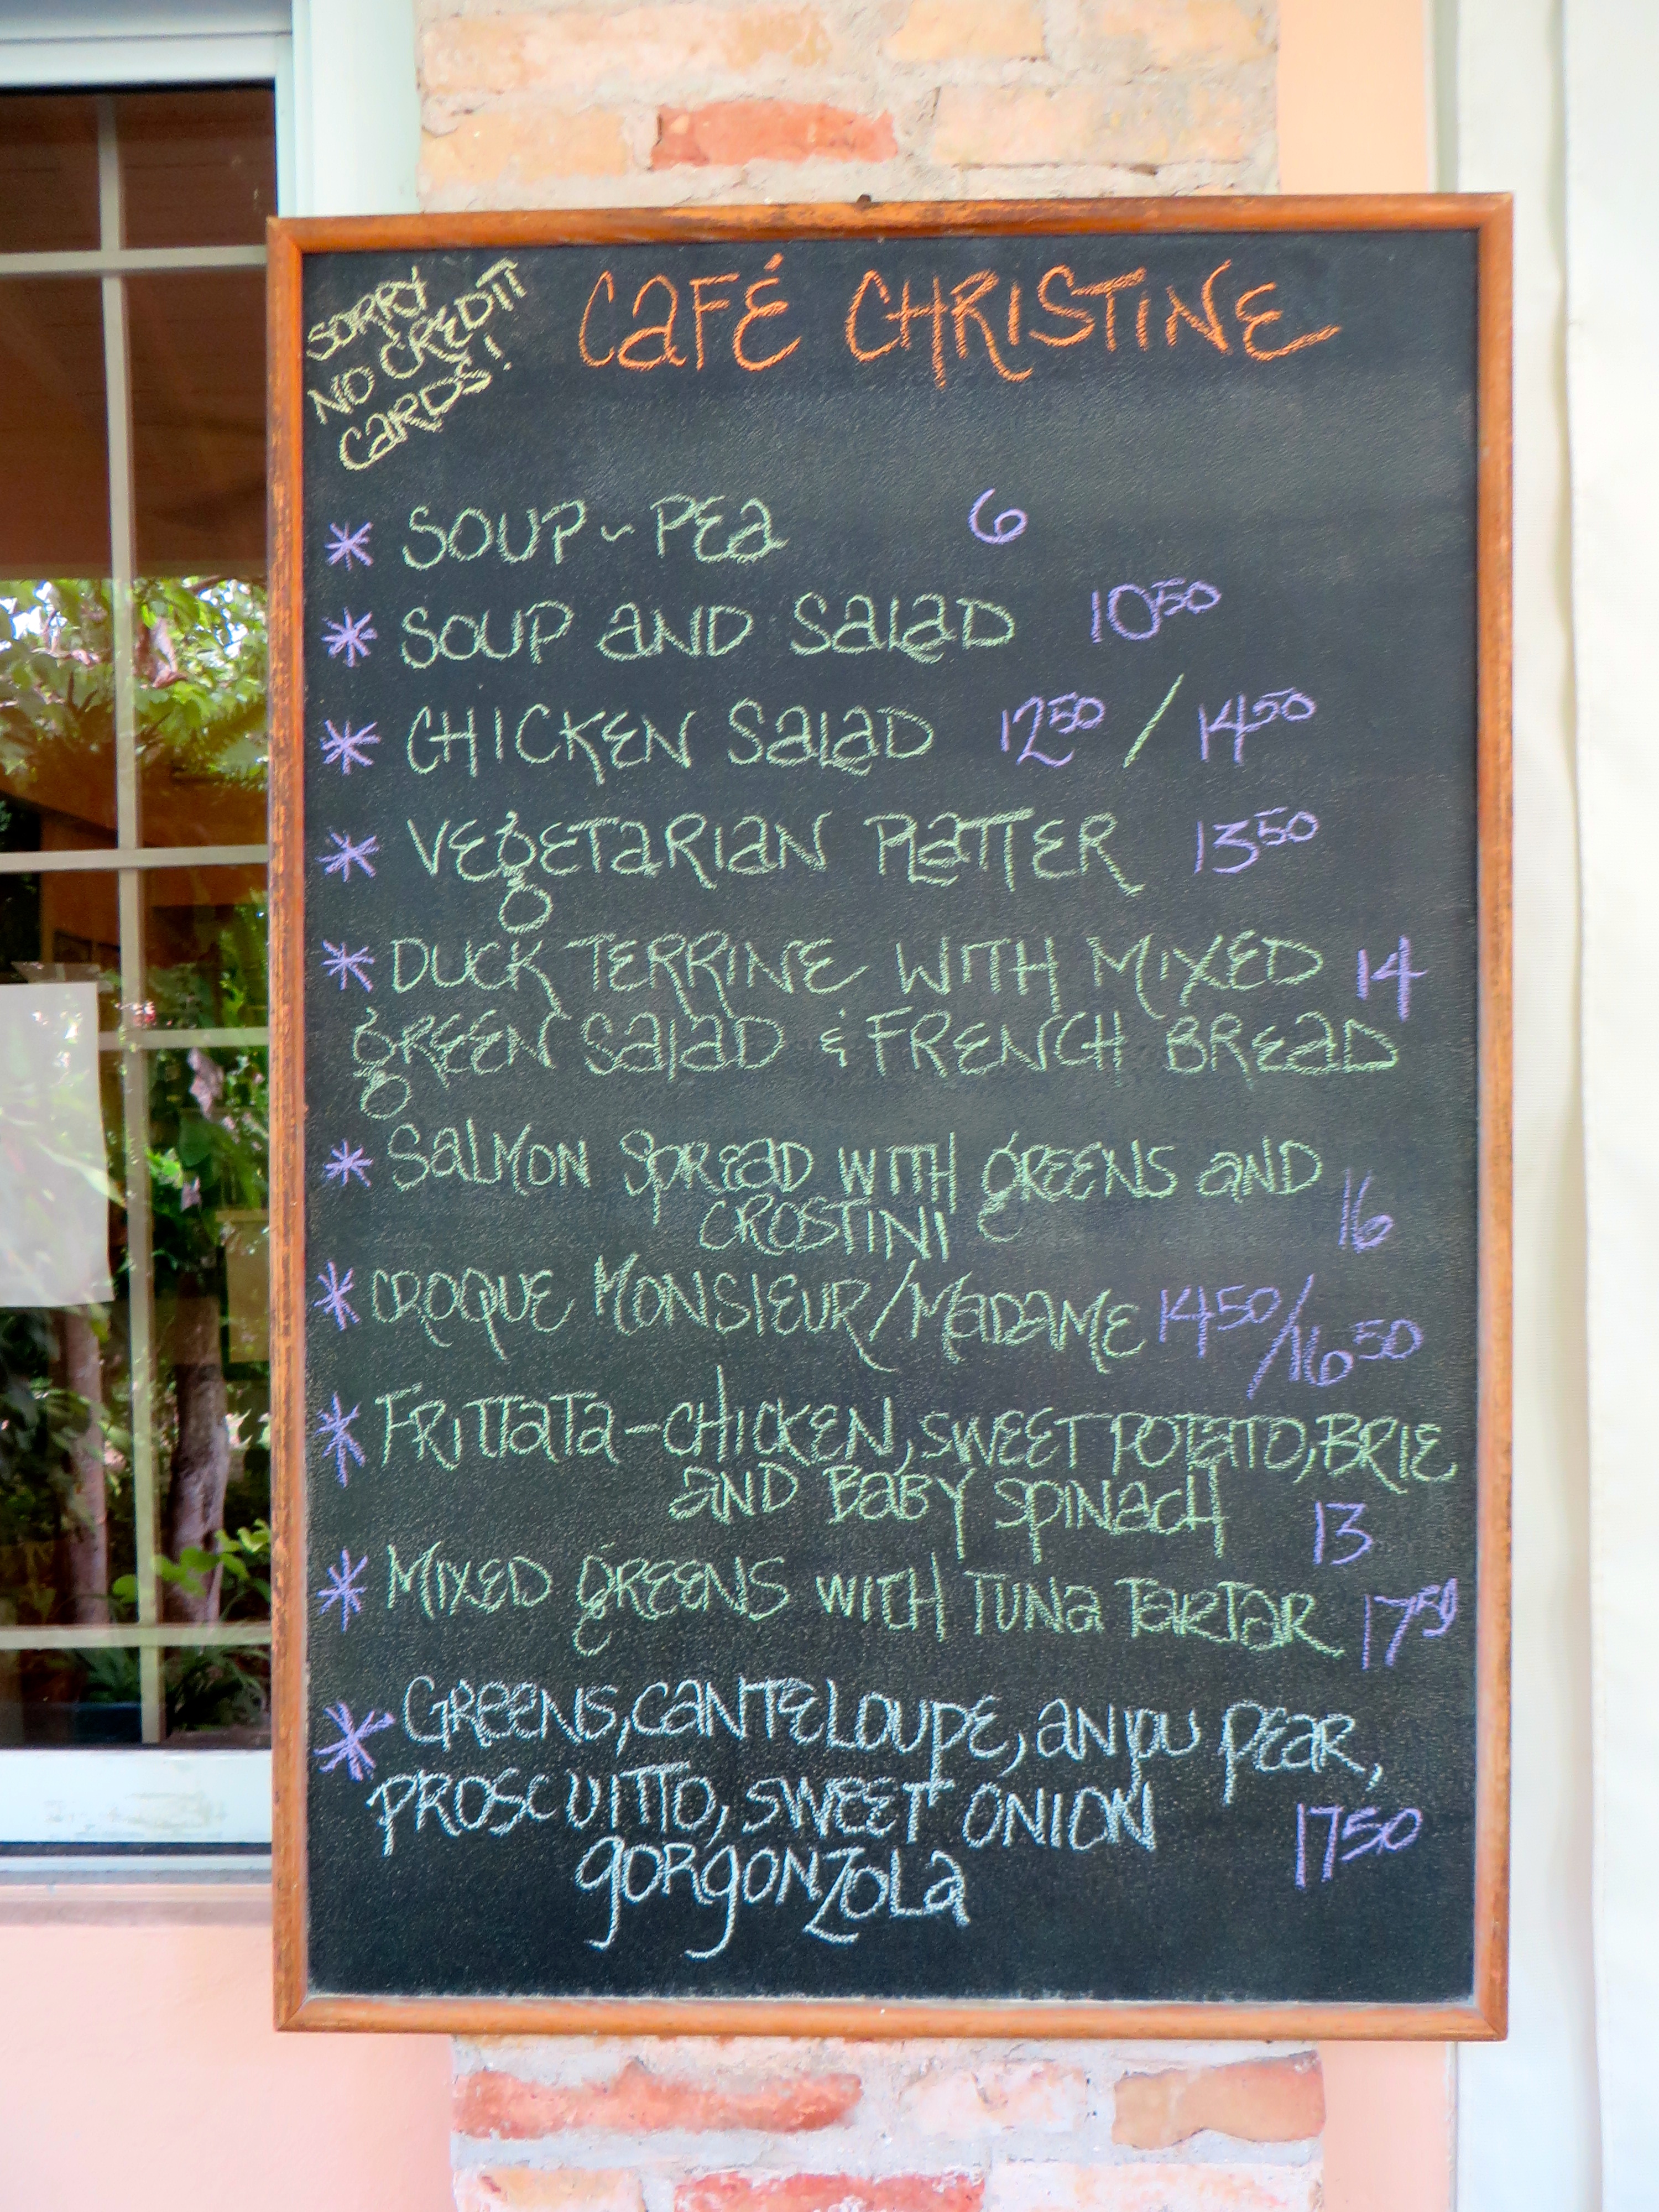 SORRY
NO CREDIT
CARDS!
CAFÉ CHRISTINE
* SOUP ~ PEA 6
* SOUP AND SALAD 10 50
* CHICKEN SALAD 12 50 / 14 50
* VEGETARIAN PLATTER 13 50
* DUCK TERRINE WITH MIXED 14
GREEN SALAD & FRENCH BREAD
* SALMON SPREAD WITH GREENS AND
CROSTINI 16
* CROQUE MONSIEUR/MADAME 14 50/16 50
* FRITTATA - CHICKEN, SWEET POTATO, BRIE
AND BABY SPINACH 13
* MIXED GREENS WITH TUNA TARTAR 17 50
* GREENS, CANTELOUPE, ANJOU PEAR,
PROSCUITTO, SWEET ONION 17 50
GORGONZOLA